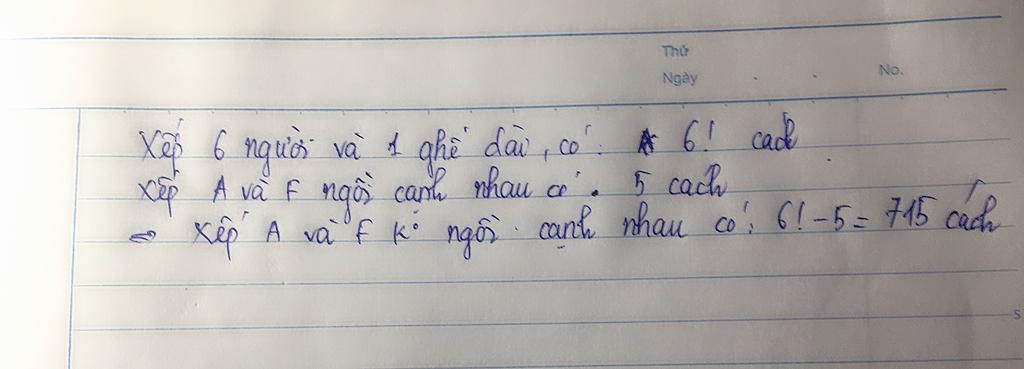 Thứ
Ngày . . No.
Xếp 6 người và 1 ghế dài, có: 6! cách
Xếp A và F ngồi cạnh nhau có. 5 cách
=> Xếp A và F k° ngồi cạnh nhau có: 6! - 5 = 715 cách
5